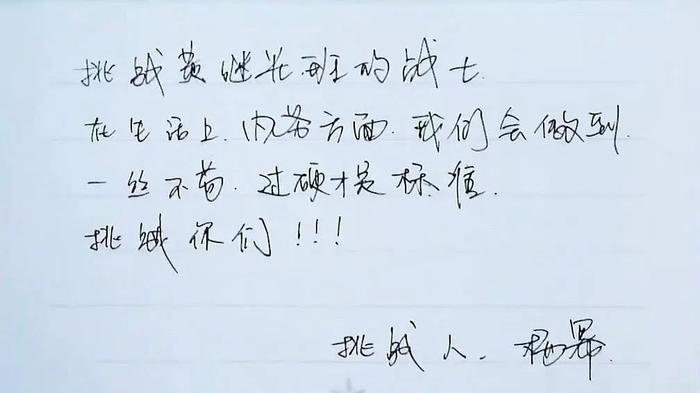 挑战黄继光班的战士
在生活上.内务方面.我们会做到.
一丝不苟.过硬才是标准.
挑战你们!!!
挑战人.杨幂.